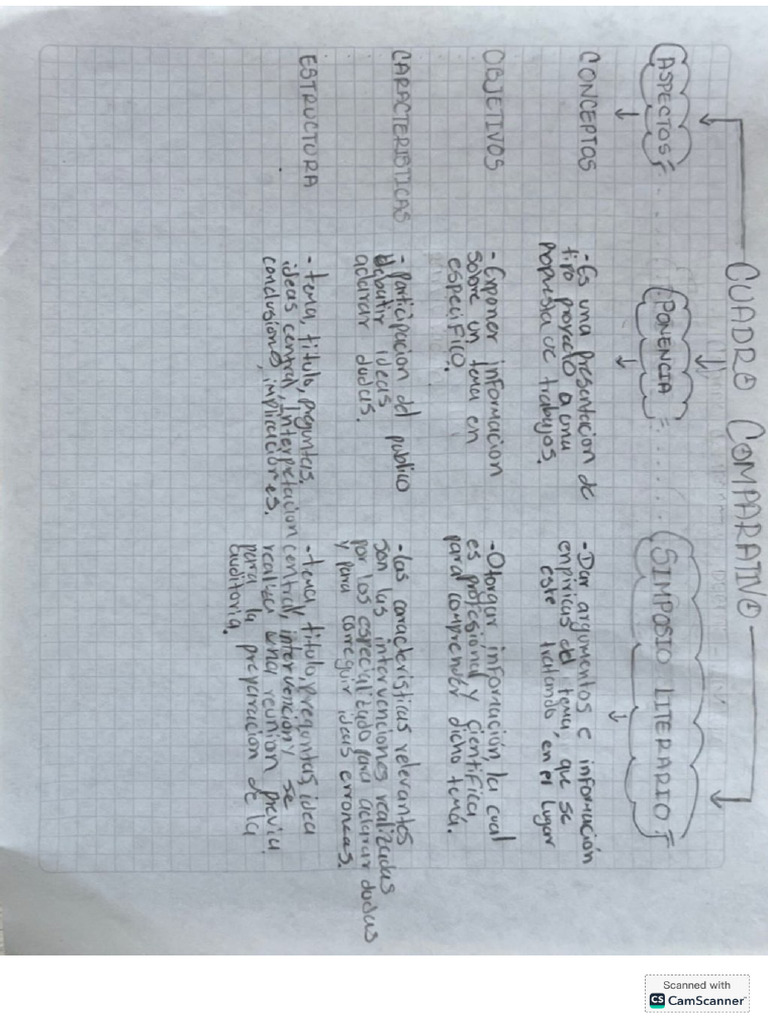 CUADRO COMPARATIVO
ASPECTOS
PONENCIA
SIMPOSIO LITERARIO
CONCEPTOS
- Es una presentacion de
tipo proyecto a una
propuesta de trabajos.
- Dar argumentos e información
empiricas del tema, que se
este tratando, en el lugar
OBJETIVOS
- Exponer informacion
sobre un tema en
especifico.
- Otorgar información, la cual
es profesional y cientifica
para comprender dicho tema.
CARACTERISTICAS
- Participacion del publico
debatir ideas
aclarar dudas.
- Las caracteristicas relevantes
son las intervenciones realizadas
por los especializado para aclarar dudas
y para correguir ideas erroneas.
ESTRUCTURA
- tema, titulo, preguntas,
ideas central, interpretacion
conclusiones, implicaciones.
- tema, titulo, preguntas, idea
central, intervención y se
realiza una reunion previa
para la preparacion de la
auditoria.
Scanned with
CS CamScanner